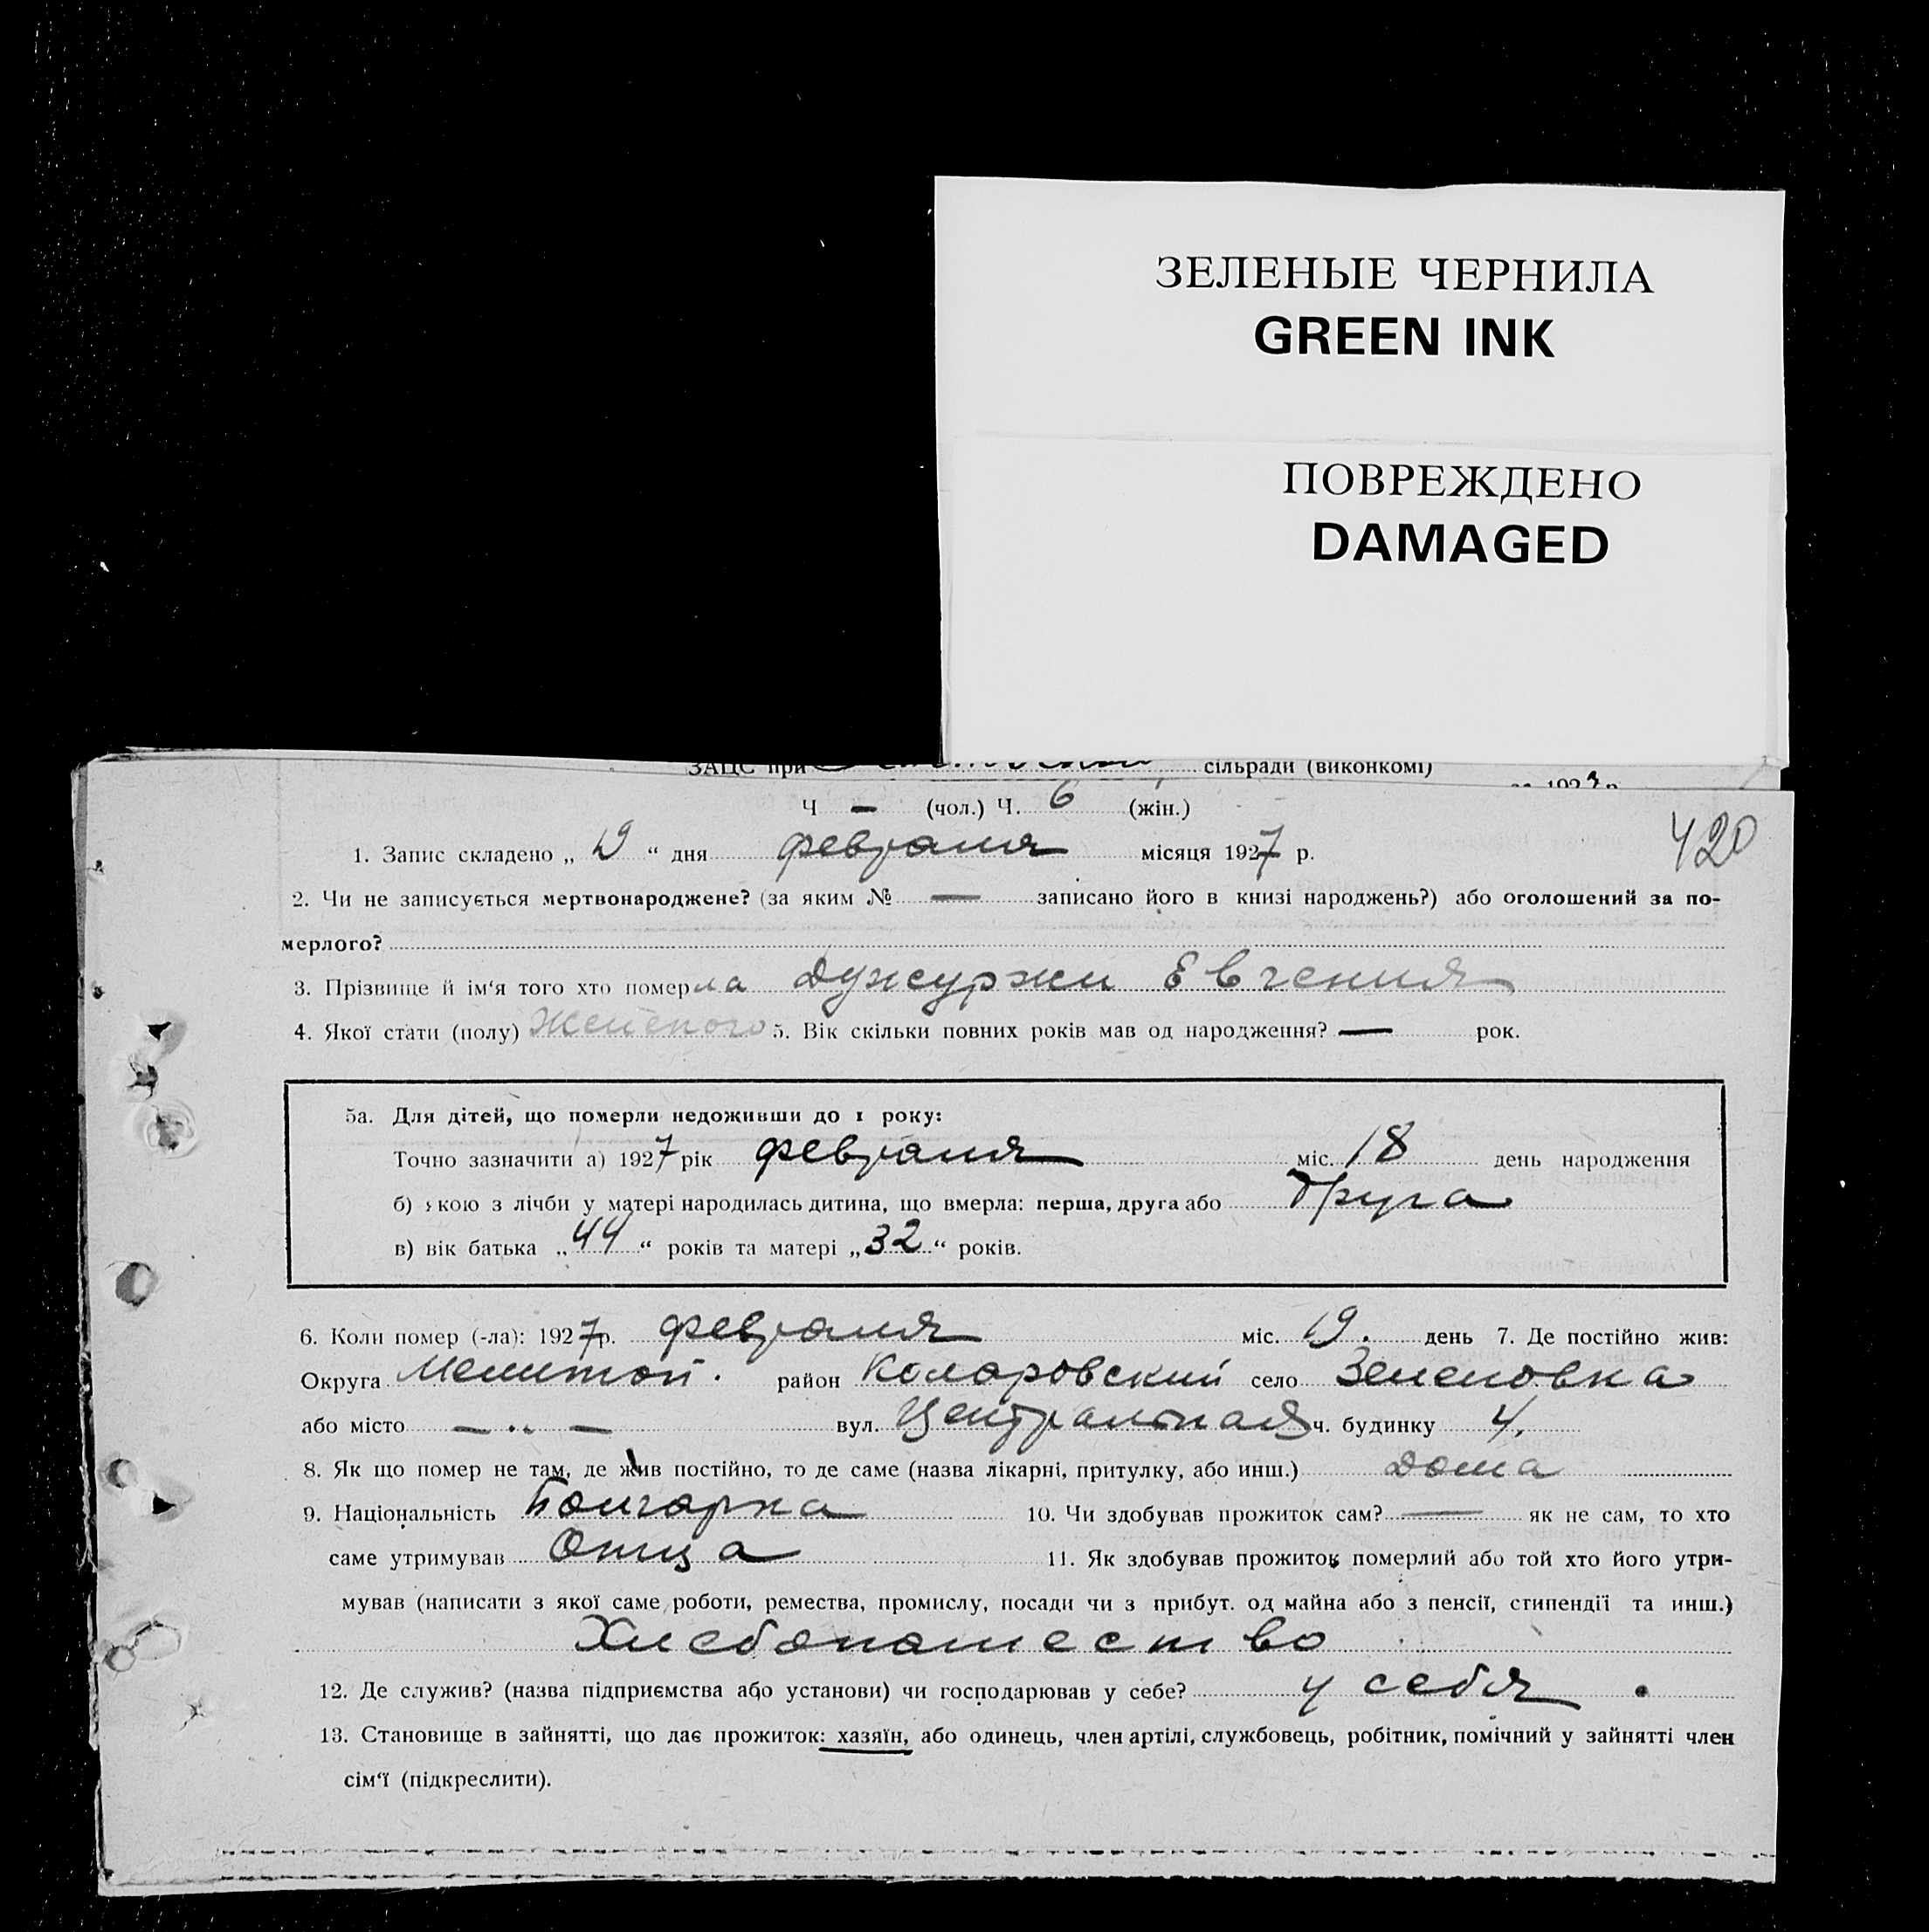 ЗЕЛЕНЫЕ ЧЕРНИЛА
GREEN INK
ПОВРЕЖДЕНО
DAMAGED
ЗАЦС при сільради (виконкомі)
Ч — (чол.) Ч. 6 (жін.)
420
1. Запис складено „ 19 “ дня февраля місяця 1927 р.
2. Чи не записується мертвонароджене? (за яким № — записано його в книзі народжень?) або оголошений за по-
мерлого?
3. Прізвище й ім‘я того хто померла Дужуржи Евгения
4. Якої стати (полу) Женского 5. Вік скільки повних років мав од народження? — рок.
5а. Для дітей, що померли недоживши до 1 року:
Точно зазначити а) 1927 рік февраля міс. 18 день народження
б) якою з лічби у матері народилась дитина, що вмерла: перша, друга або друга
в) вік батька „44“ років та матері „32“ років.
6. Коли помер (-ла): 1927 р. февраля міс. 19. день 7. Де постійно жив:
Округа Мелитоп. район Коларовский село Зеленовка
або місто — „ — вул. Центральная ч. будинку 4.
8. Як що помер не там, де жив постійно, то де саме (назва лікарні, притулку, або инш.) дома
9. Національність Болгарка 10. Чи здобував прожиток сам? — як не сам, то хто
саме утримував Отца 11. Як здобував прожиток померлий або той хто його утри-
мував (написати з якої саме роботи, ремества, промислу, посади чи з прибут. од майна або з пенсії, стипендії та инш.)
Хлебопашество
12. Де служив? (назва підприємства або установи) чи господарював у себе? у себя
13. Становище в зайнятті, що дає прожиток: хазяїн, або одинець, член артілі, службовець, робітник, помічний у зайнятті член
сім‘ї (підкреслити).